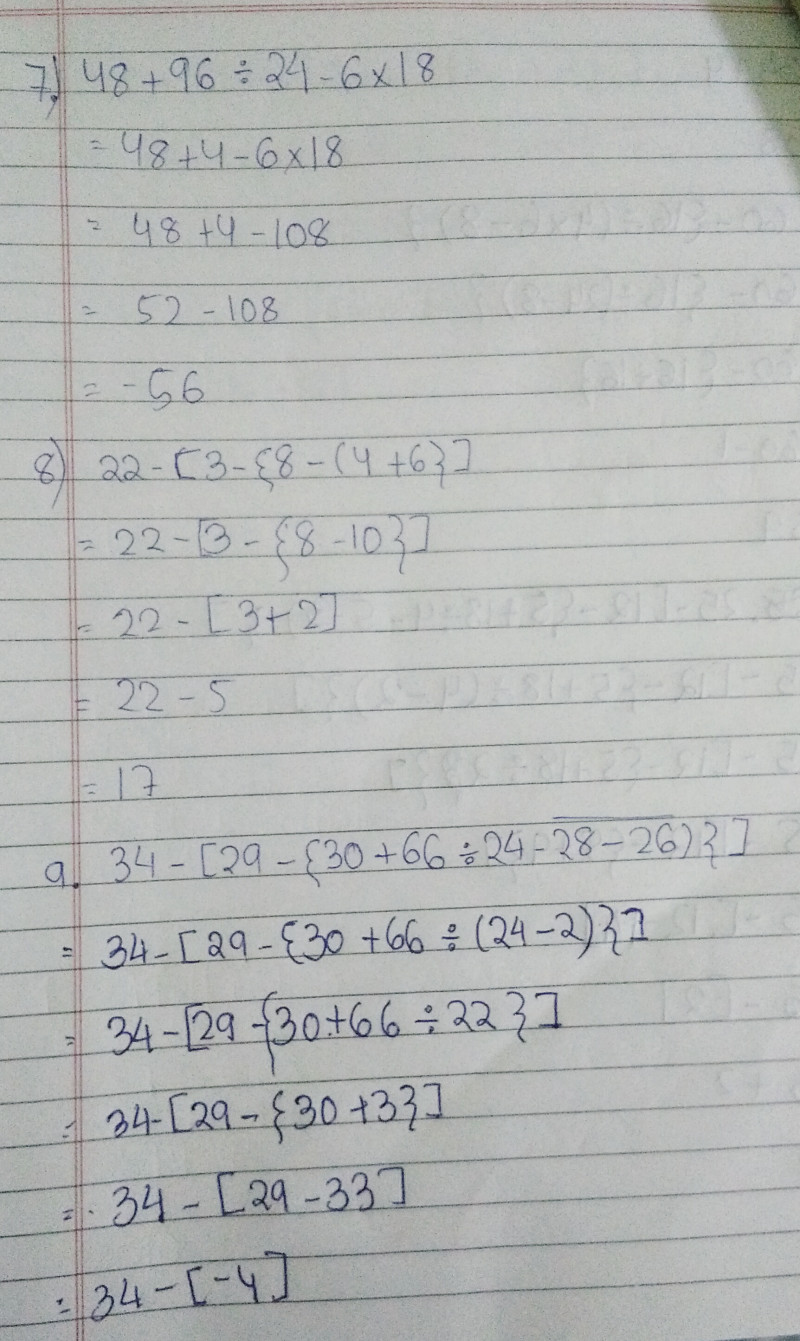 7) 48 + 96 ÷ 24 - 6 × 18
= 48 + 4 - 6 × 18
= 48 + 4 - 108
= 52 - 108
= -56
8) 22 - [3 - {8 - (4 + 6}]
= 22 - [3 - {8 - 10}]
= 22 - [3 + 2]
= 22 - 5
= 17
9. 34 - [29 - {30 + 66 ÷ 24 - 2̅8̅ ̅-̅ ̅2̅6̅)}]
= 34 - [29 - {30 + 66 ÷ (24 - 2)}]
= 34 - [29 - {30 + 66 ÷ 22}]
= 34 - [29 - {30 + 3}]
= 34 - [29 - 33]
= 34 - [-4]